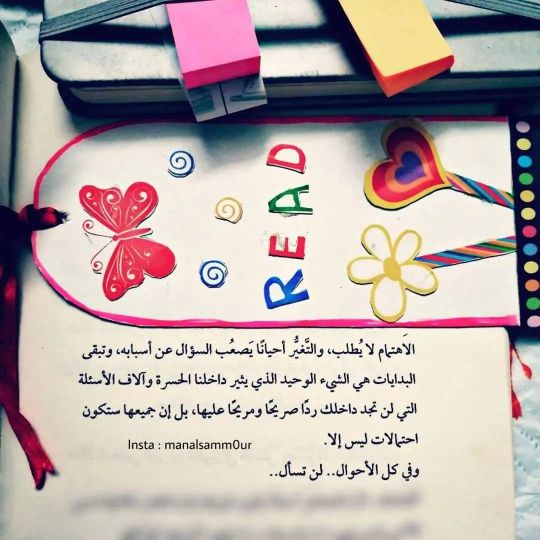 READ
الاهتمام لا يُطلب، والتَّغيُّر أحيانًا يَصعُب السؤال عن أسبابه، وتبقى
البدايات هي الشيء الوحيد الذي يثير داخلنا الحسرة وآلاف الأسئلة
التي لن تجد داخلك ردًا صريحًا ومريحًا عليها، بل إن جميعها ستكون
احتمالات ليس إلا.
Insta : manalsamm0ur
وفي كل الأحوال.. لن تسأل..